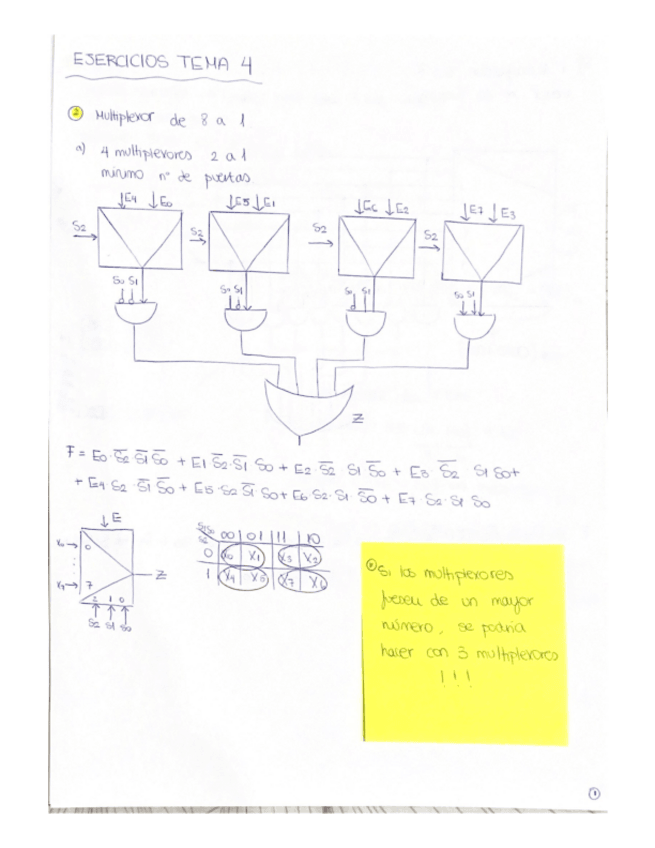 EJERCICIOS TEMA 4
2 Multiplexor de 8 a 1
a) 4 multiplexores 2 a 1
mínimo nº de puertas.
E4 E0 E5 E1 E6 E2 E7 E3
S2 S2 S2 S2
S0 S1 S0 S1 S0 S1 S0 S1
Z
F = E0·S̅2 S̅1 S̅0 + E1 S̅2·S̅1 S0 + E2·S̅2 S1 S̅0 + E3 S̅2 S1 S0+
+ E4 S2·S̅1 S̅0 + E5·S2 S̅1·S0+ E6 S2·S1·S̅0 + E7·S2·S1 S0
E
X0 0
7
Z
2 1 0
S2 S1 S0
S1S0 00 01 11 10
S2
0 X0 X1 X3 X2
1 X4 X5 X7 X6
Si los multiplexores
fuesen de un mayor
número, se podría
hacer con 3 multiplexores
!!!
1